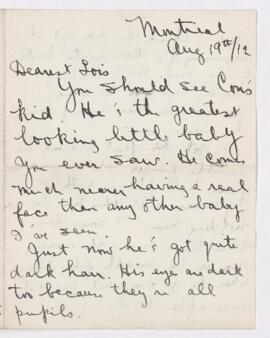 Montreal
Aug 19th/12
Dearest Lois
You should see Con's
kid He's the greatest
looking little baby
you ever saw. He comes
much nearer having a real
face than any other baby
I've seen.
Just now he's got quite
dark hair. His eyes are dark
too because they're all
pupils.